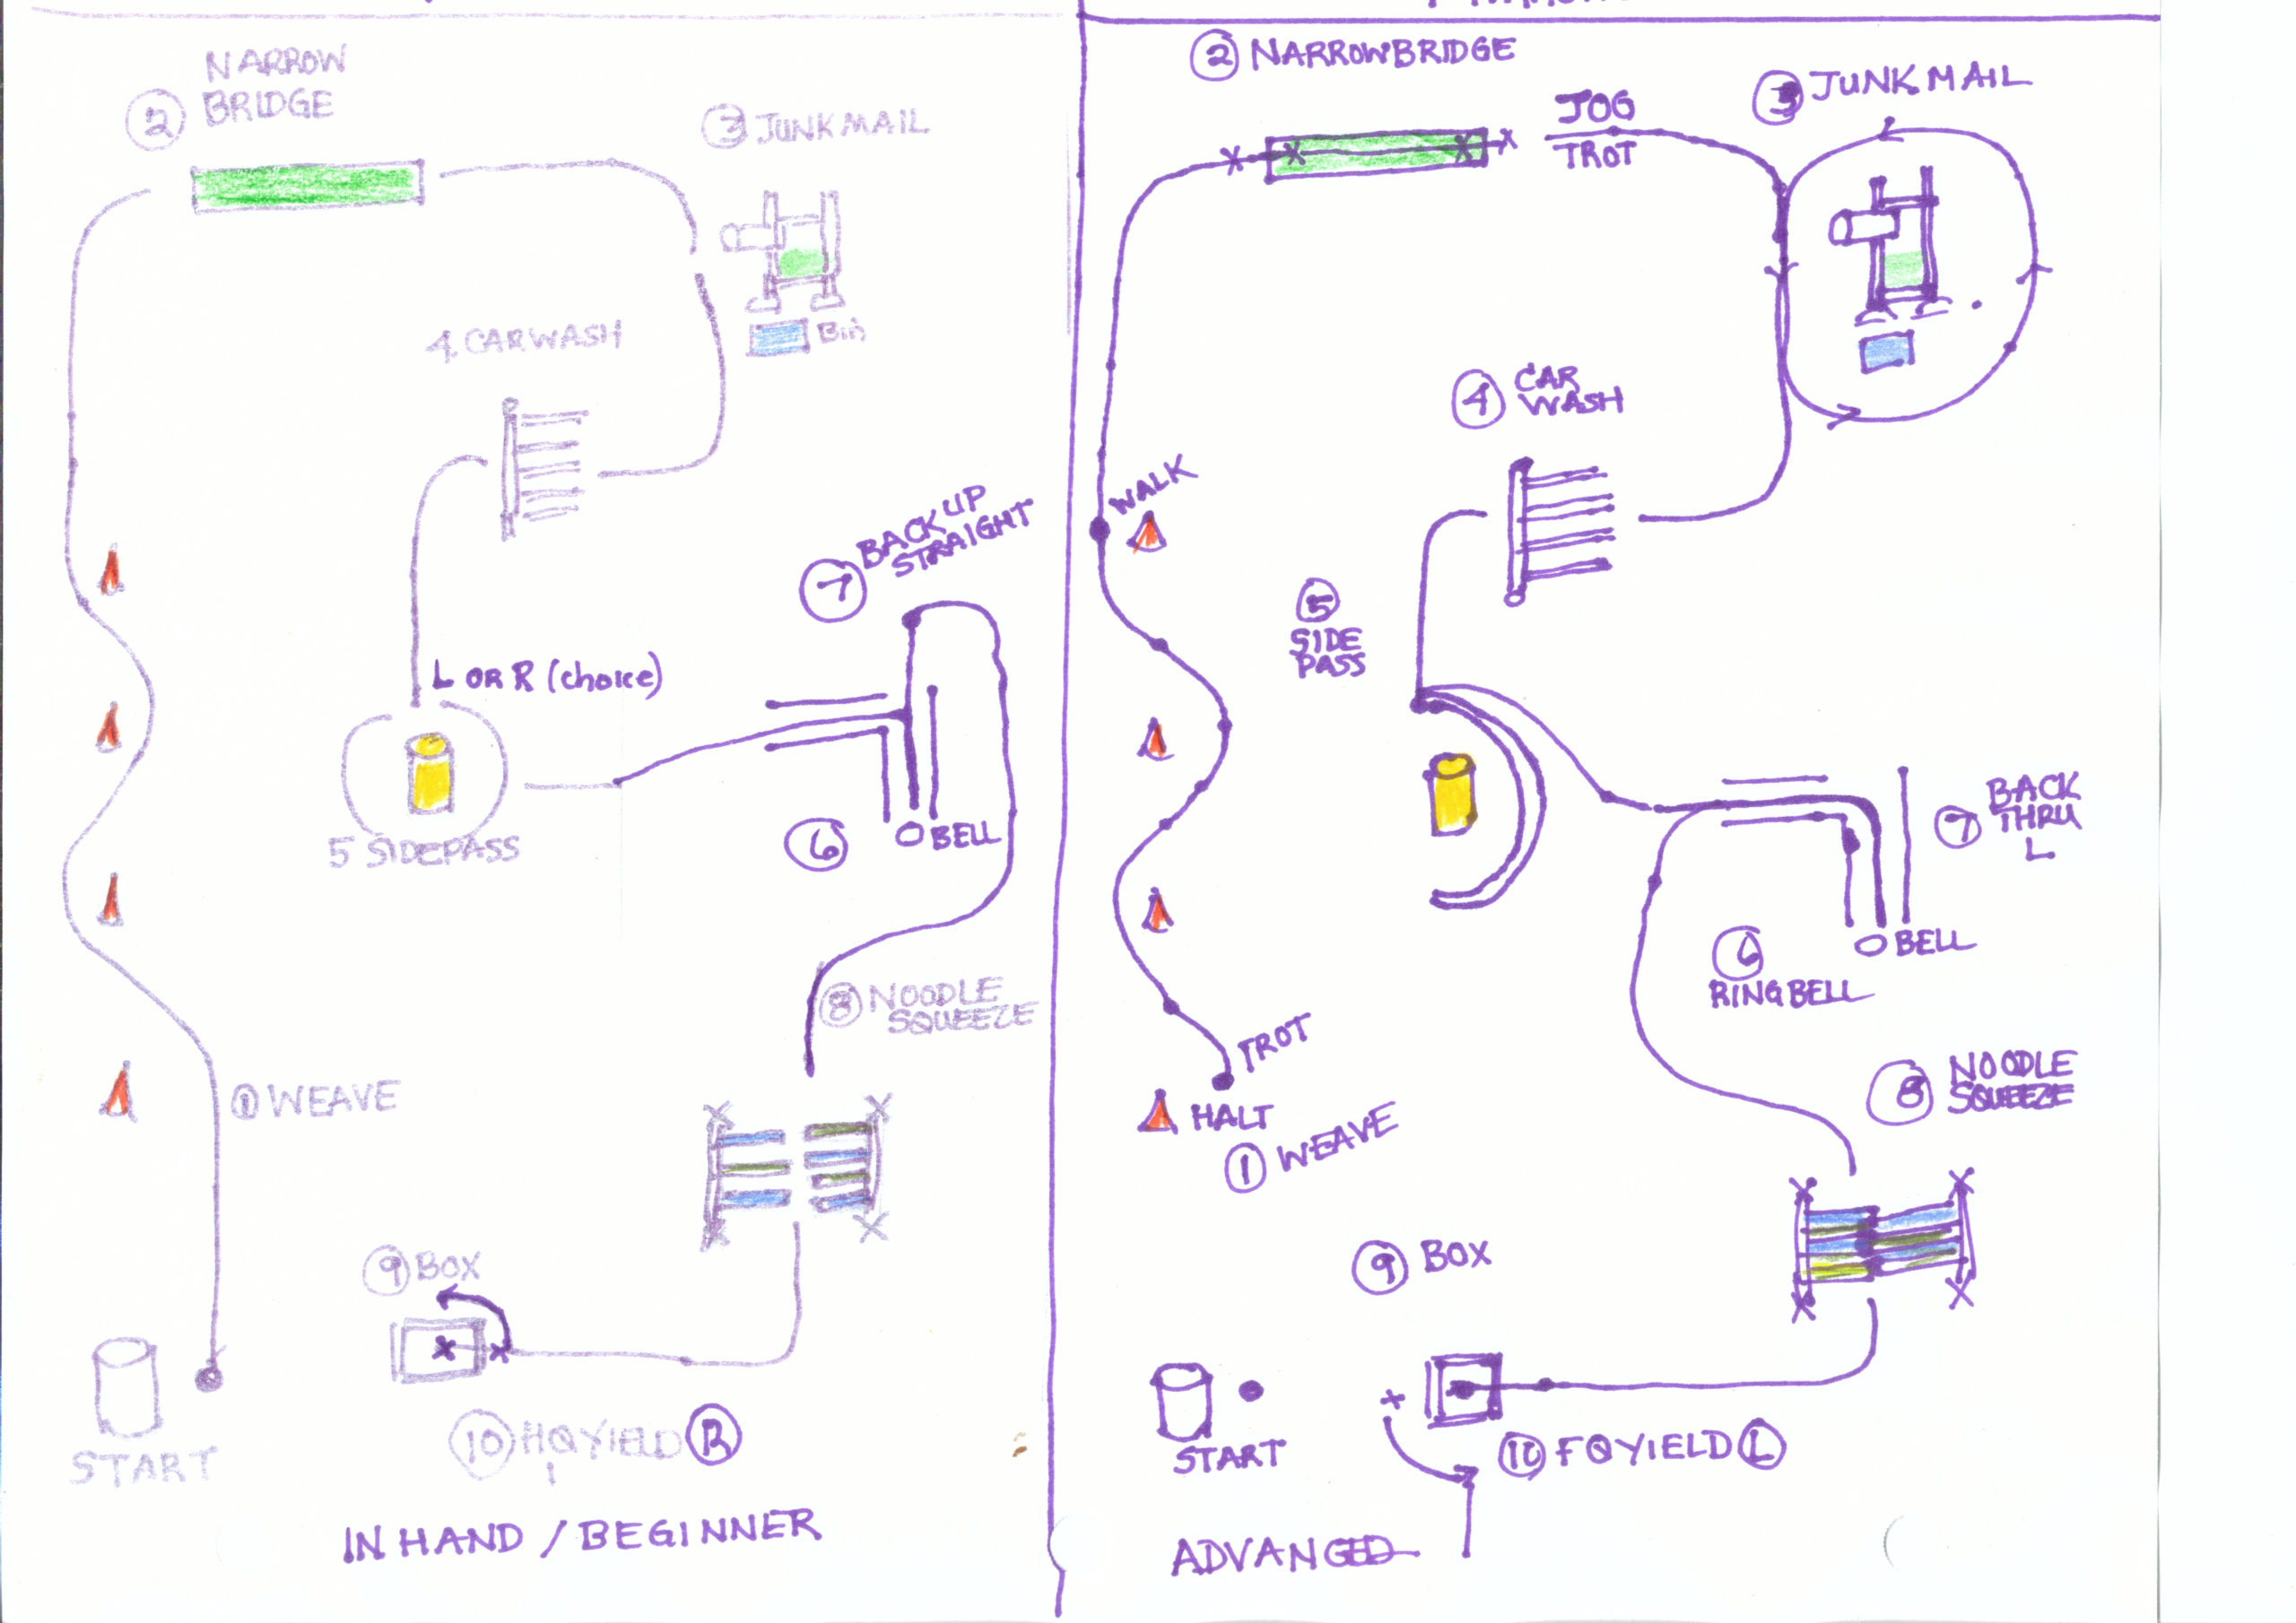 NARROW
② BRIDGE
③ JUNKMAIL
Bin
4. CARWASH
⑦ BACKUP
STRAIGHT
L OR R (choice)
5 SIDEPASS
⑥
BELL
⑧ NOODLE
SQUEEZE
① WEAVE
⑨ BOX
⑩ HQ YIELD Ⓡ
START
IN HAND / BEGINNER
② NARROWBRIDGE
JOG
TROT
③ JUNKMAIL
④ CAR
WASH
WALK
⑤
SIDE
PASS
⑦ BACK
THRU
L
BELL
⑥
RING BELL
TROT
HALT
① WEAVE
⑧ NOODLE
SQUEEZE
⑨ BOX
START
⑩ FQ YIELD Ⓛ
ADVANCED